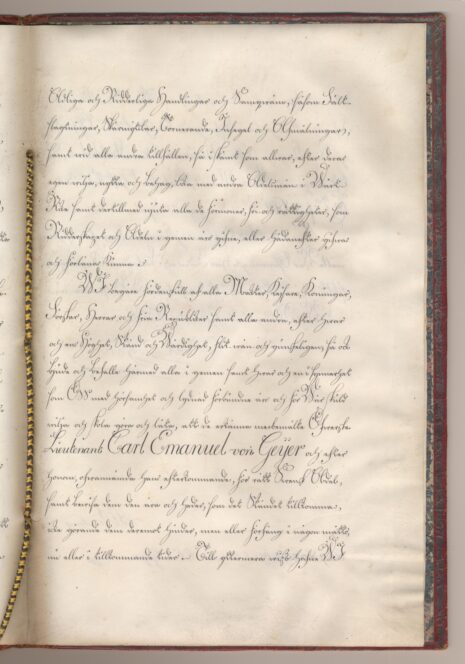 Adelige och Ridderlige Handlingar och Samqväm, såsom Fält-
slagningar, Skärmytslar, Tornerande, Insegel och Målningar,
samt vid alla andra tillfällen, så i skämt som allvar, efter deras
egen vilja, nytta och behag, lika med andra Adelsmän i Wårt
Rike samt dertillmed njuta alla de förmoner, fri och rättigheter, som
Ridderskapet och Adeln i gemen äro gifne, eller hädanefter gifvas
och förlänas kunna.
WI begäre fördenskull af alla Magter, Kejsare, Konungar,
Förstar, Herrar och fria Republiker samt alla andra, efter hvars
och ens Höghet, Stånd och Wärdighet, som och
bjude och befalle härmed alla i gemen samt hvar och en i synnerhet
som OSS med hörsamhet och lydnad förbundne äro och för Wår skuld
vilja och skola göra och låta, att de erkänna merbemälte Öfverste
Lieutenant Carl Emanuel von Geijer och efter
honom, ofvannämnde hans efterkommande, för rätt Svensk Adel,
samt bevisa dem den ära och heder, som det Ståndet tillkomma,
icke görande dem deremot hinder, men eller förfång i någon måtto,
nu eller i tillkommande tider. Till yttermera visso hafve WI